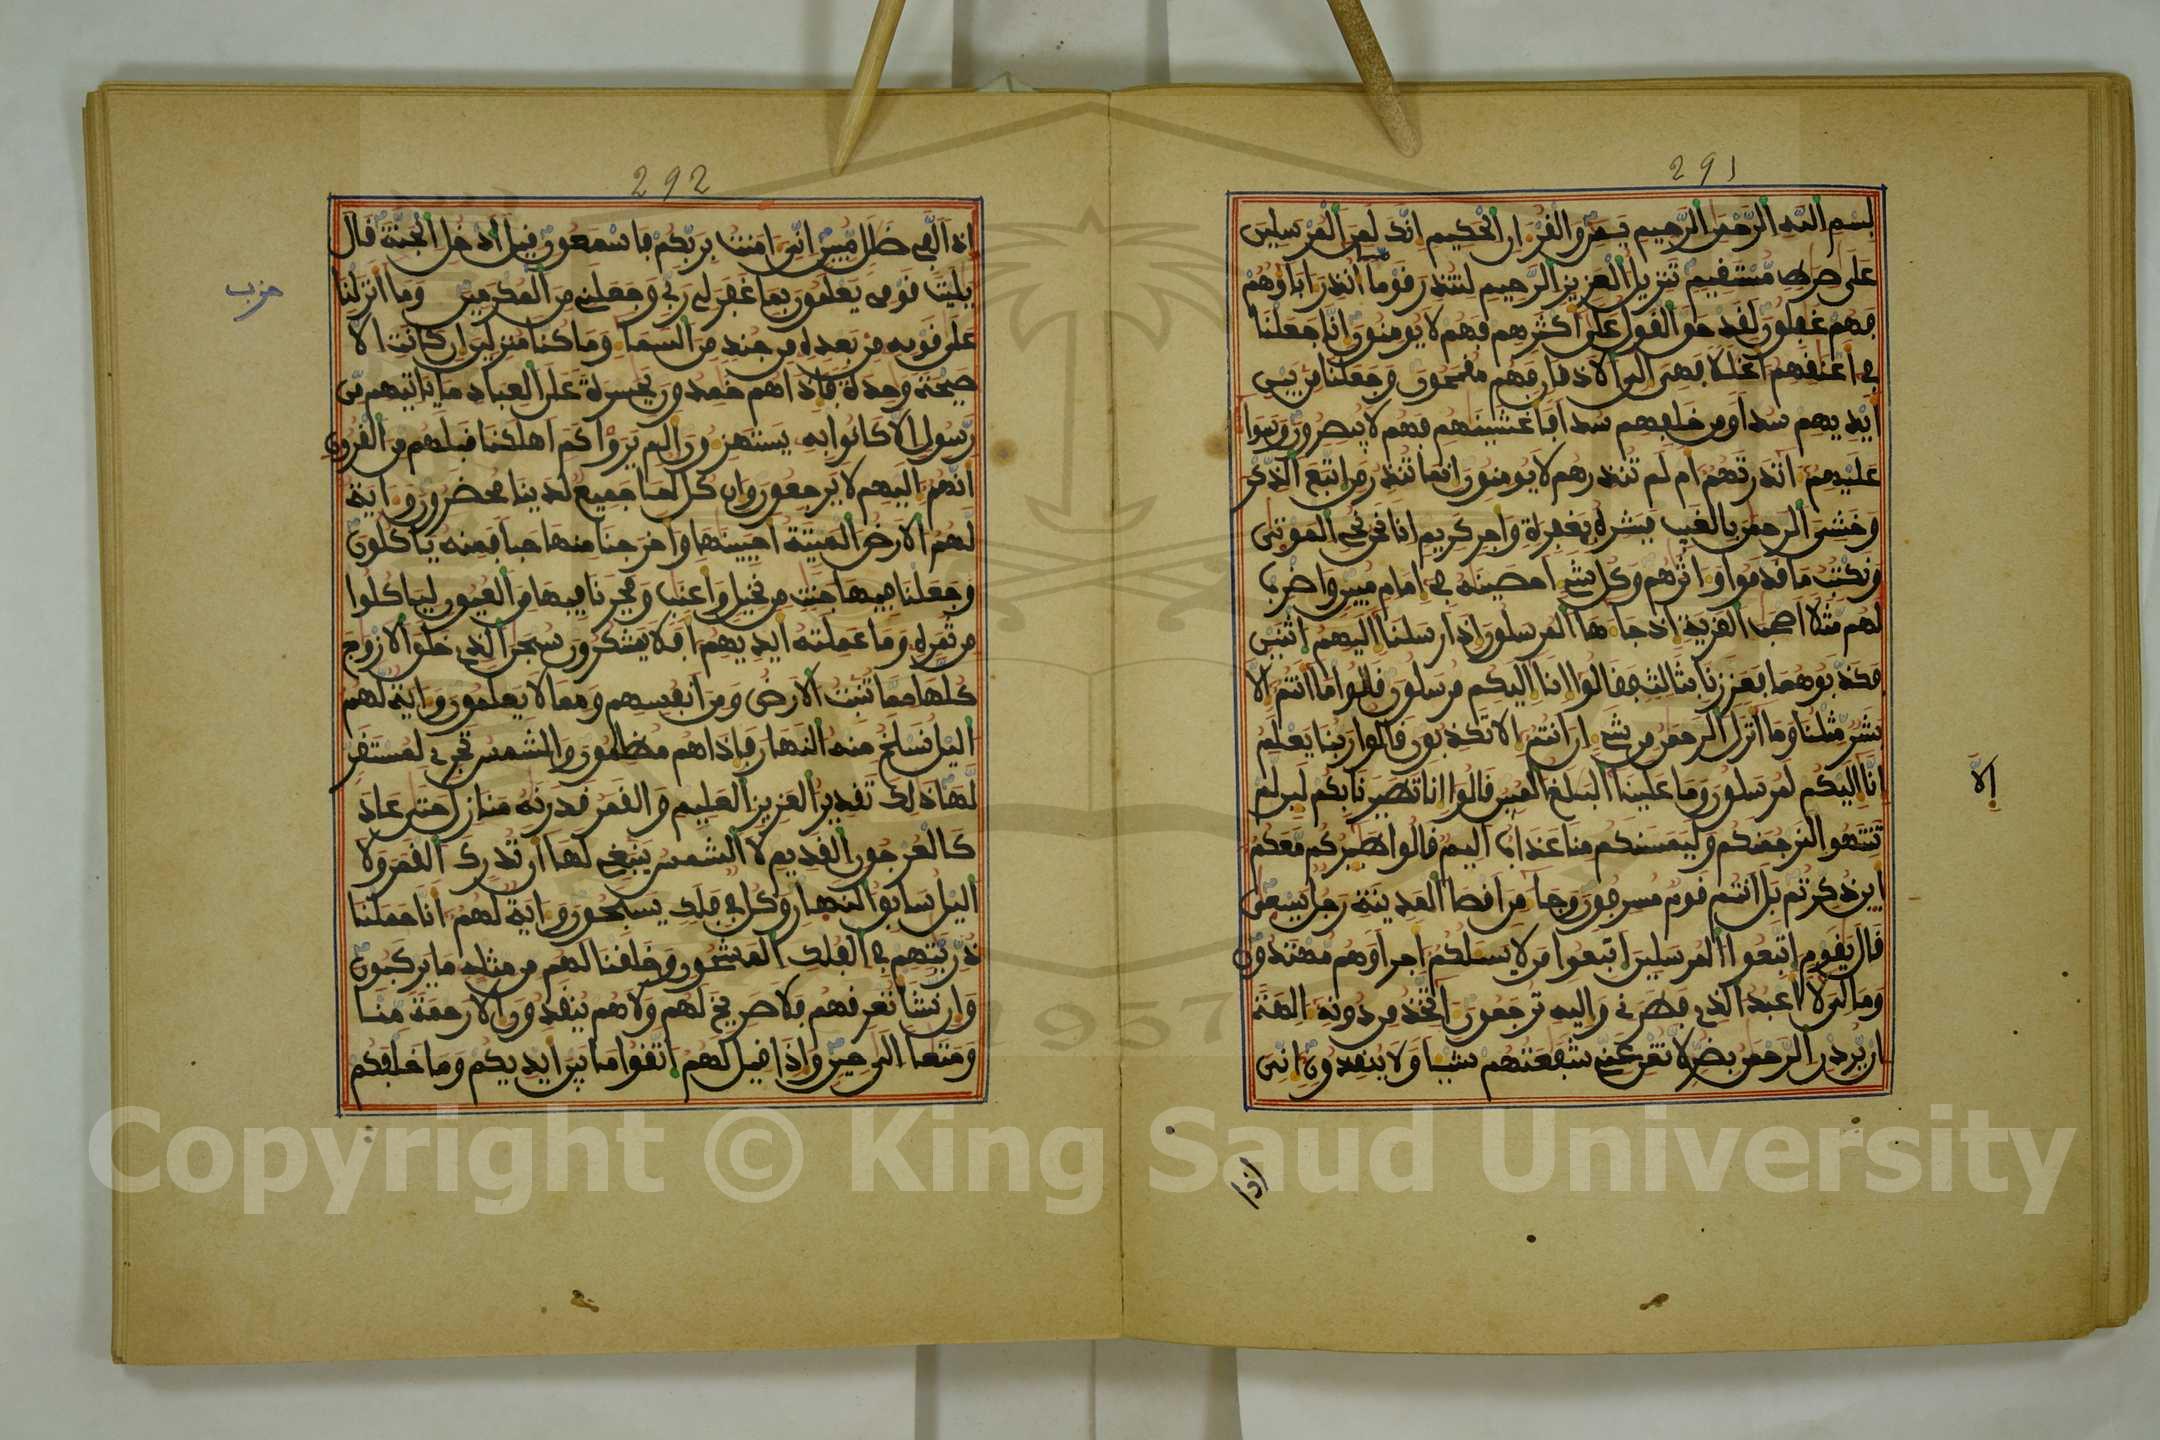 291
بسم الله الرحمن الرحيم يس والقرءان الحكيم انك لمن المرسلين
على صرط مستقيم تنزيل العزيز الرحيم لتنذر قوما ما انذر اباوهم
فهم غفلون لقد حق القول على اكثرهم فهم لا يومنون انا جعلنا
في اعنقهم اغللا فهي الى الاذقان فهم مقمحون وجعلنا من بين
ايديهم سدا ومن خلفهم سدا فاغشينهم فهم لا يبصرون وسوا
عليهم انذرتهم ام لم تنذرهم لا يومنون انما تنذر من اتبع الذكر
وخشي الرحمن بالغيب فبشره بمغفرة واجر كريم انا نحن نحي الموتى
ونكتب ما قدموا واثرهم وكل شي احصينه في امام مبين واضرب
لهم مثلا اصحب القرية اذ جاها المرسلون اذ ارسلنا اليهم اثنين
فكذبوهما فعززنا بثالث فقالوا انا اليكم مرسلون قالوا ما انتم الا
بشر مثلنا وما انزل الرحمن من شي ان انتم الا تكذبون قالوا ربنا يعلم
الا
انا اليكم لمرسلون وما علينا البلغ المبين قالوا انا تطيرنا بكم لين لم
تنتهوا لنرجمنكم وليمسنكم منا عذاب اليم قالوا طيركم معكم
اين ذكرتم بل انتم قوم مسرفون وجا من اقصا المدينة رجل يسعى
قال يقوم اتبعوا المرسلين اتبعوا من لا يسلكم اجرا وهم مهتدون
وما لي لا اعبد الذي فطرني واليه ترجعون اتخذ من دونه الهة
ان يردن الرحمن بضر لا تغن عني شفعتهم شيا ولا ينقذون اني
اذا
292
اذا لفي ضلل مبين اني امنت بربكم فاسمعون قيل ادخل الجنة قال
يليت قومي يعلمون بما غفر لي ربي وجعلني من المكرمين وما انزلنا
حزب
على قومه من بعده من جند من السما وما كنا منزلين ان كانت الا
صيحة وحدة فاذا هم خمدون يحسرة على العباد ما ياتيهم من
رسول الا كانوا به يستهزون الم يروا كم اهلكنا قبلهم من القرون
انهم اليهم لا يرجعون وان كل لما جميع لدينا محضرون واية
لهم الارض الميتة احيينها واخرجنا منها حبا فمنه ياكلون
وجعلنا فيها جنت من نخيل واعنب وفجرنا فيها من العيون لياكلوا
من ثمره وما عملته ايديهم افلا يشكرون سبحن الذي خلق الازوج
كلها مما تنبت الارض ومن انفسهم ومما لا يعلمون واية لهم
اليل نسلخ منه النهار فاذا هم مظلمون والشمس تجري لمستقر
لها ذلك تقدير العزيز العليم والقمر قدرنه منازل حتى عاد
كالعرجون القديم لا الشمس ينبغي لها ان تدرك القمر ولا
اليل سابق النهار وكل في فلك يسبحون واية لهم انا حملنا
ذريتهم في الفلك المشحون وخلقنا لهم من مثله ما يركبون
وان نشا نغرقهم فلا صريخ لهم ولا هم ينقذون الا رحمة منا
ومتعا الى حين واذا قيل لهم اتقوا ما بين ايديكم وما خلفكم
1957
Copyright © King Saud University